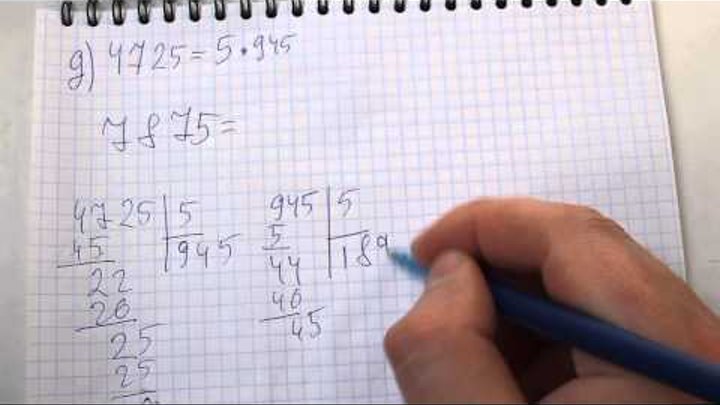 д) 4725 = 5 • 945
7875 =
4725 | 5
45 | 945
22
20
25
25
945 | 5
5 | 189
44
40
45